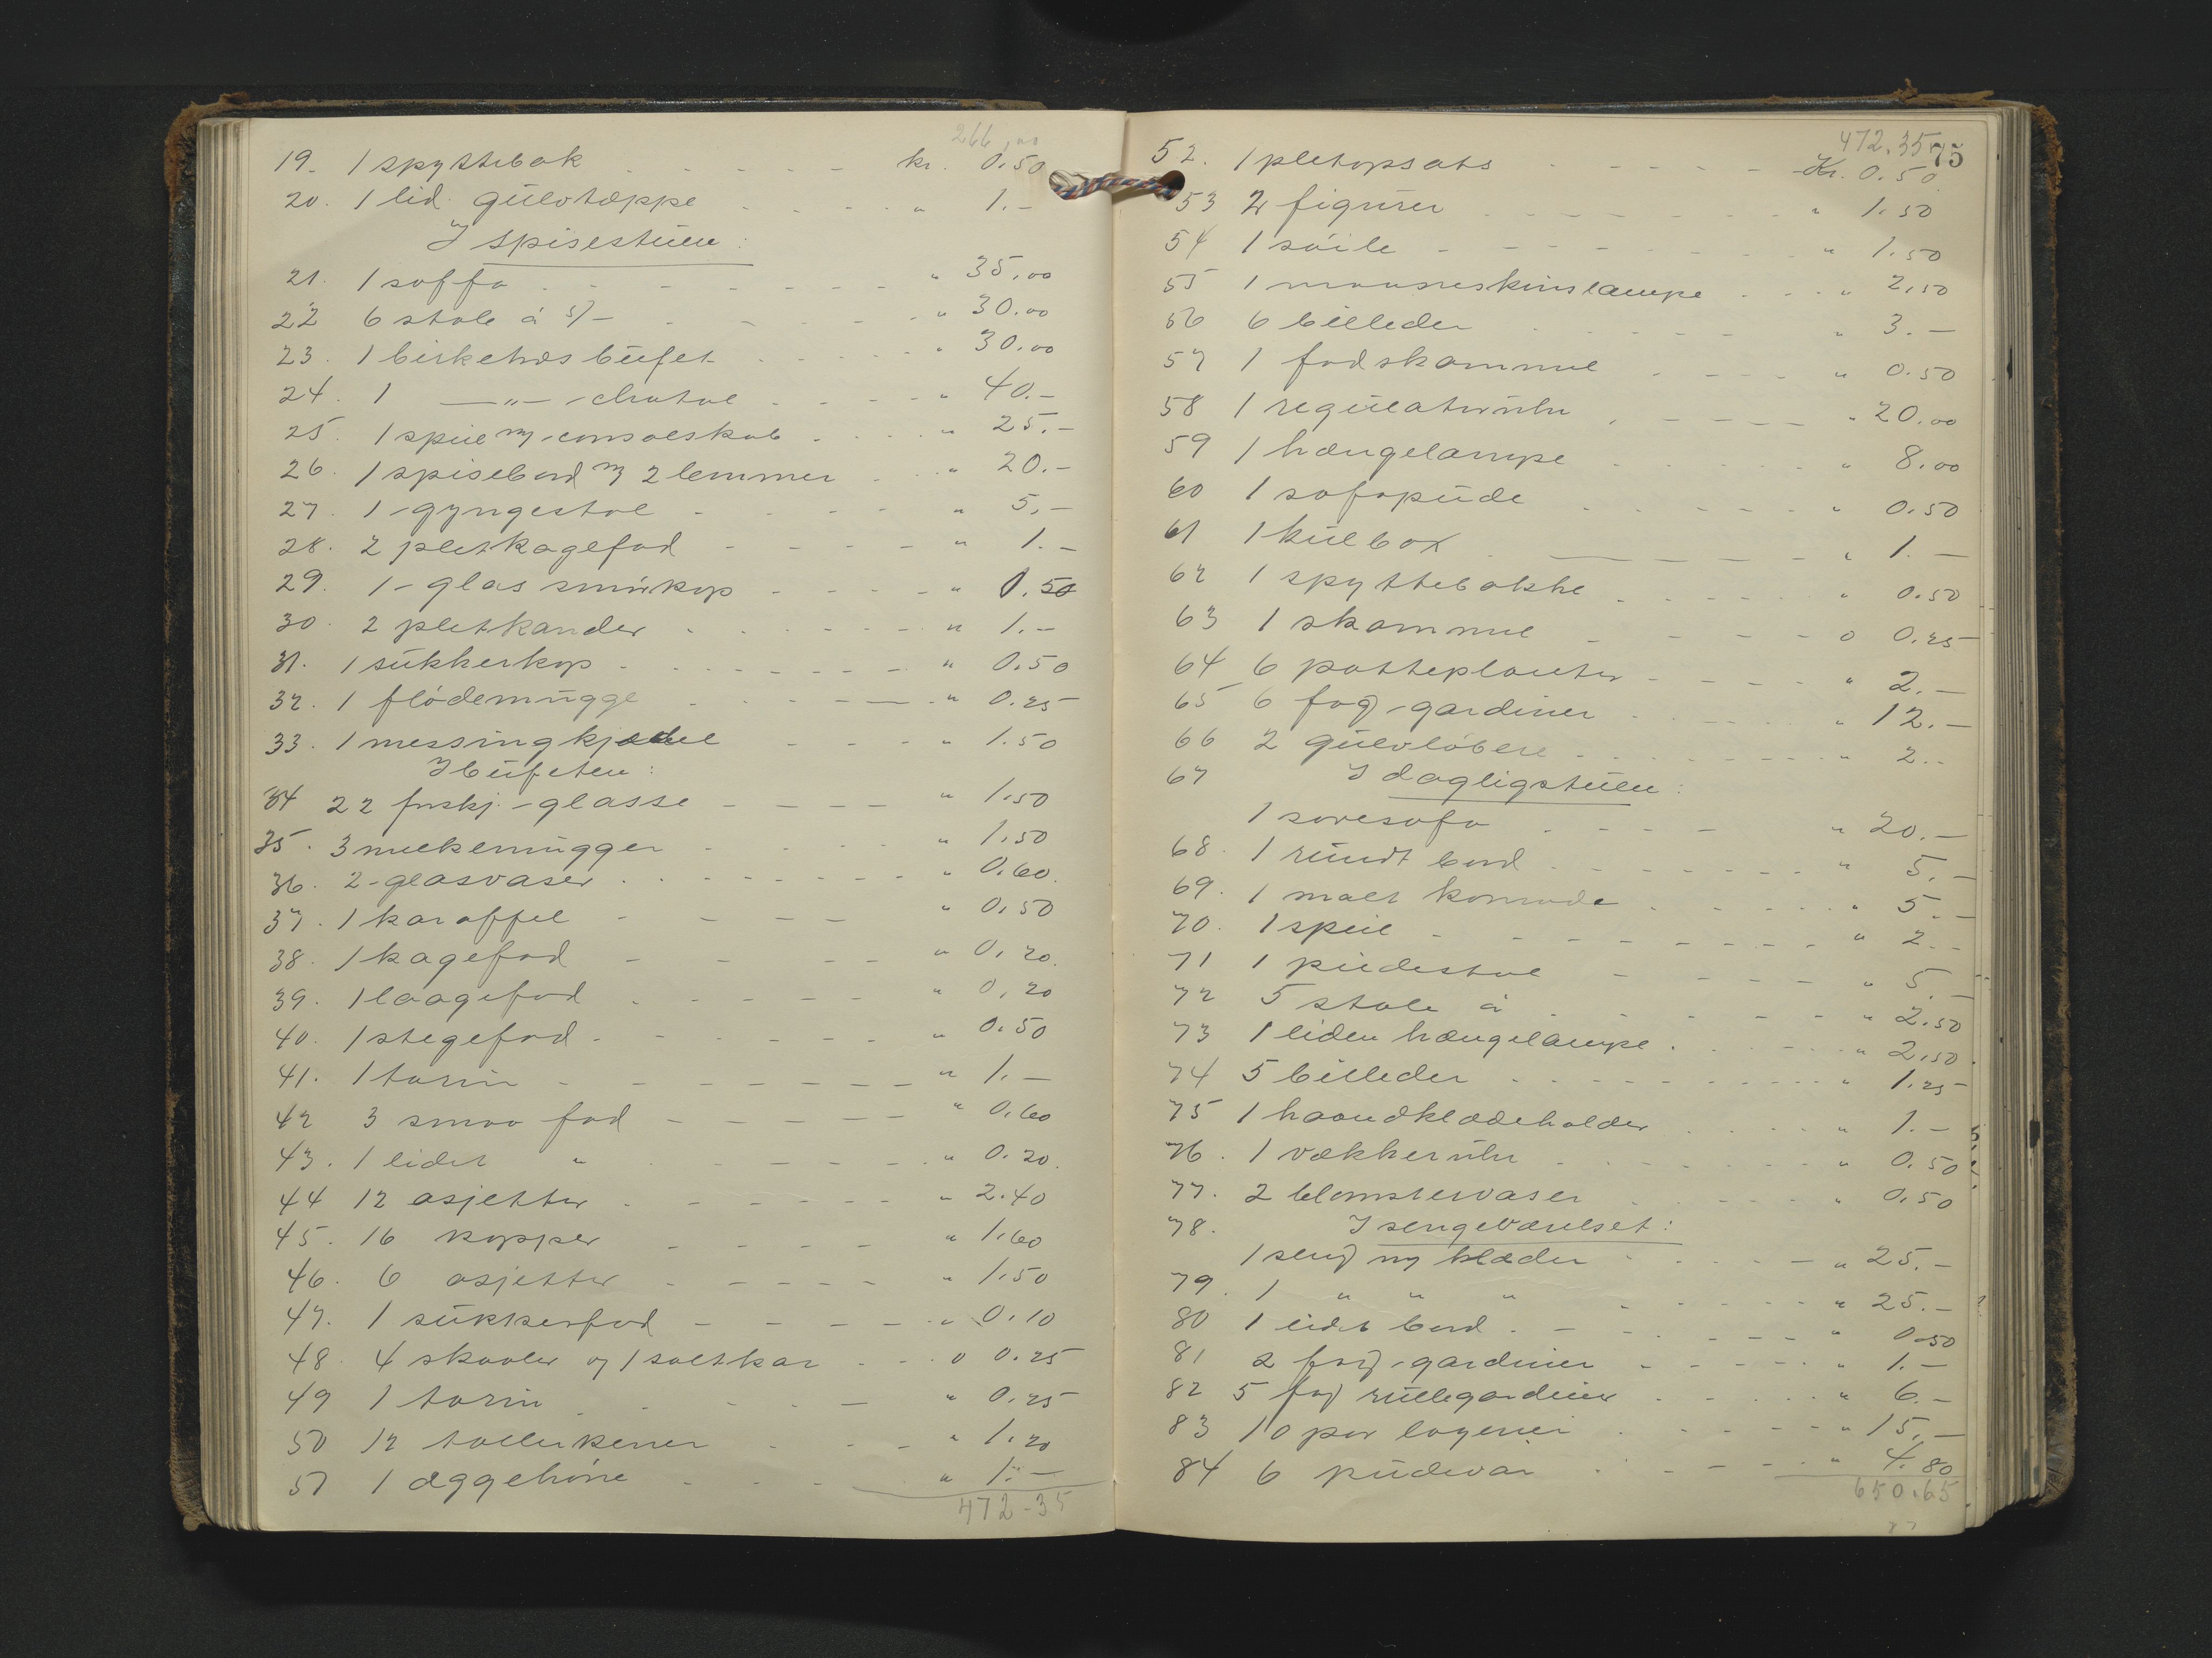 266,00
19. 1 spyttebak - - - - - kr. 0.50
20. 1 lid. gulvtæppe - - - - " 1.-
I spisestuen:
21. 1 soffa - - - - - " 35,00
22 6 stole á 5/- - - - " 30.00
23. 1 birketræs bufet - - - " 30.00
24. 1 -"- chatol - - - " 40.-
25. 1 speil m/ consolskab - - " 25.-
26. 1 spisebord m/ 2 lemmer - " 20.-
27. 1 gyngestol - - - - " 5.-
28. 2 pletkagefad - - - - " 1.-
29. 1 glas smørkop - - - - " 0.50
30. 2 pletkander - - - - " 1.-
31. 1 sukkerkop - - - - " 0.50
32. 1 flødemugge - - - " 0.25
33. 1 messingkjedel - - - " 1.50
I bufeten:
34 22 forskj. glasse - - - - " 1.50
35. 3 melkemugger - - - " 1.50
36. 2 glasvaser - - - - " 0.60
37. 1 karaffel - - - - " 0.50
38. 1 kagefad - - - - " 0.20
39. 1 laagefad - - - - " 0.20
40. 1 stegefad - - - - " 0.50
41. 1 tarin - - - - - " 1.-
42 3 smaa fad - - - - " 0.60
43. 1 lidet " - - - - " 0.20
44 12 asjetter - - - - " 2.40
45. 16 kopper - - - - " 1.60
46. 6 asjetter - - - - " 1.50
47. 1 sukkerfad - - - - " 0.10
48. 4 skaaler og 1 saltkar - - " 0.25
49 1 tarin - - - - " 0.25
50 12 tallerkener - - - " 1.20
51 1 æggehøne - - - " 1.-
472-35
472.35 75
52. 1 pletopsats - - - - Kr. 0.50
53 2 figurer - - - - " 1.50
54 1 søile - - - - - " 1.50
55 1 maaneskinslampe - - - " 2.50
56 6 billeder - - - - " 3.-
57 1 fodskammel - - - - " 0.50
58 1 regulatoruhr - - - - " 20.00
59 1 hængelampe - - - - " 8.00
60 1 sofapude - - - - " 0.50
61 1 kulbox - - - - " 1.-
62 1 spyttebakke - - - - " 0.50
63 1 skammel - - - - " 0.25
64 6 potteplanter - - - - " 2.-
65 6 fag gardiner - - - - " 12.-
66 2 gulvløbere - - - - " 2.-
67 I dagligstuen:
1 sovesofa - - - - " 20.-
68. 1 rundt bord - - - - " 5.-
69. 1 malt komode - - - - " 5.-
70. 1 speil - - - - - " 2.-
71 1 pudestol - - - - " 5.-
72 5 stole á - - - - " 2.50
73 1 liden hængelampe - - - " 2.50
74 5 billeder - - - - " 1.25
75 1 haandklædeholder - - - " 1.-
76. 1 vækkeruhr - - - - " 0.50
77. 2 blomstervaser - - - - " 0.50
78. I sengeværelset:
1 seng m/ klæder - - - - " 25.-
79. 1 " " " - - - - " 25.-
80 1 lidet bord - - - - " 0.50
81 2 fag gardiner - - - - " 1.-
82 5 fag rullegardiner - - - " 6.-
83 10 par lagener - - - - " 15.-
84 6 pudevar - - - - " 4.80
650.65